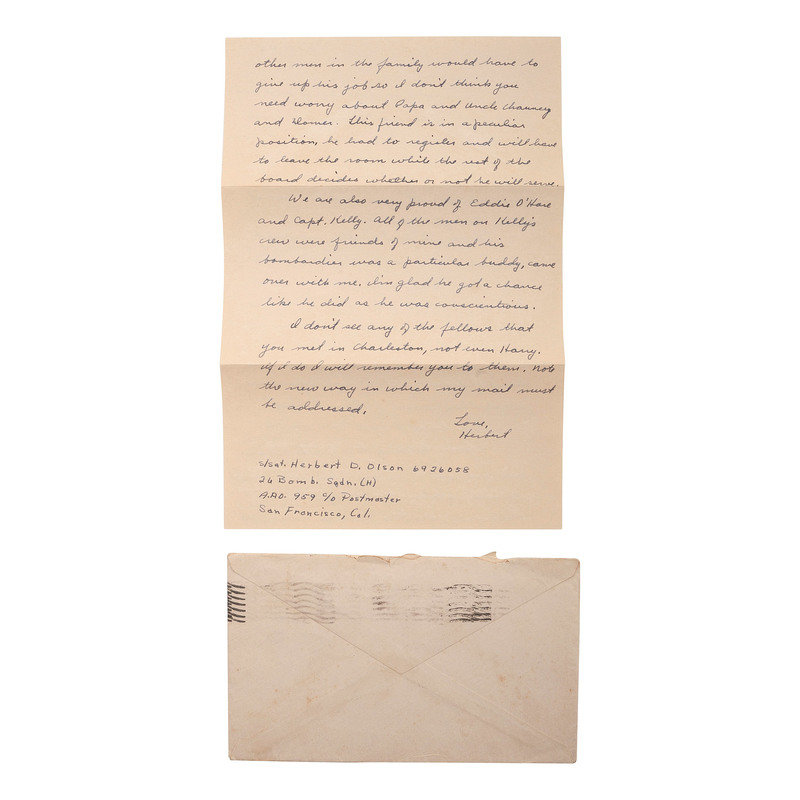 other men in the family would have to
give up his job so I don't think you
need worry about Papa and Uncle Chauncy
and Homer. This friend is in a peculiar
position, he had to register and will have
to leave the room while the rest of the
board decides whether or not he will serve.
We are also very proud of Eddie O'Hare
and Capt. Kelly. All of the men on Kelly's
crew were friends of mine and his
bombardier was a particular buddy, came
over with me. I'm glad he got a chance
like he did as he was conscientious.
I don't see any of the fellows that
you met in Charleston, not even Harry.
If I do I will remember you to them. Note
the new way in which my mail must
be addressed.
Love,
Herbert
S/Sgt. Herbert D. Olson 6926058
26 Bomb. Sqdn. (H)
A.P.O. 959 c/o Postmaster
San Francisco, Cal.